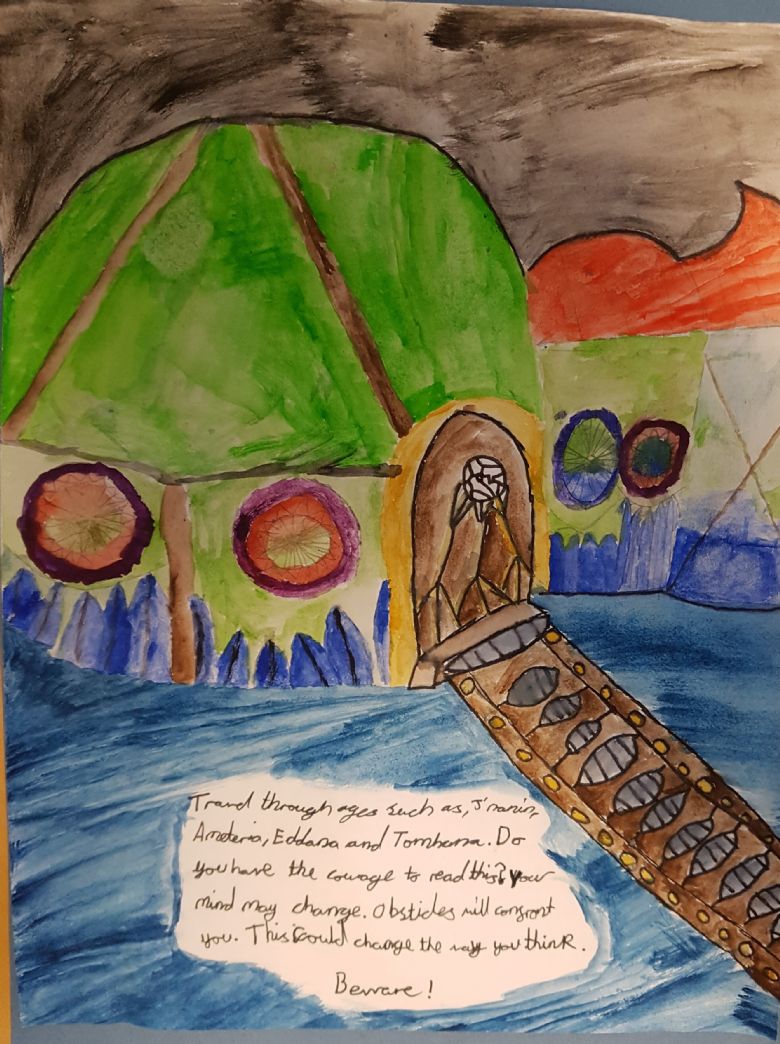 Travel through ages such as, J'nanin,
Amateria, Eddana and Tomhana. Do
you have the courage to read this? your
mind may change. Obsticles will confront
you. This could change the way you think.
Beware!